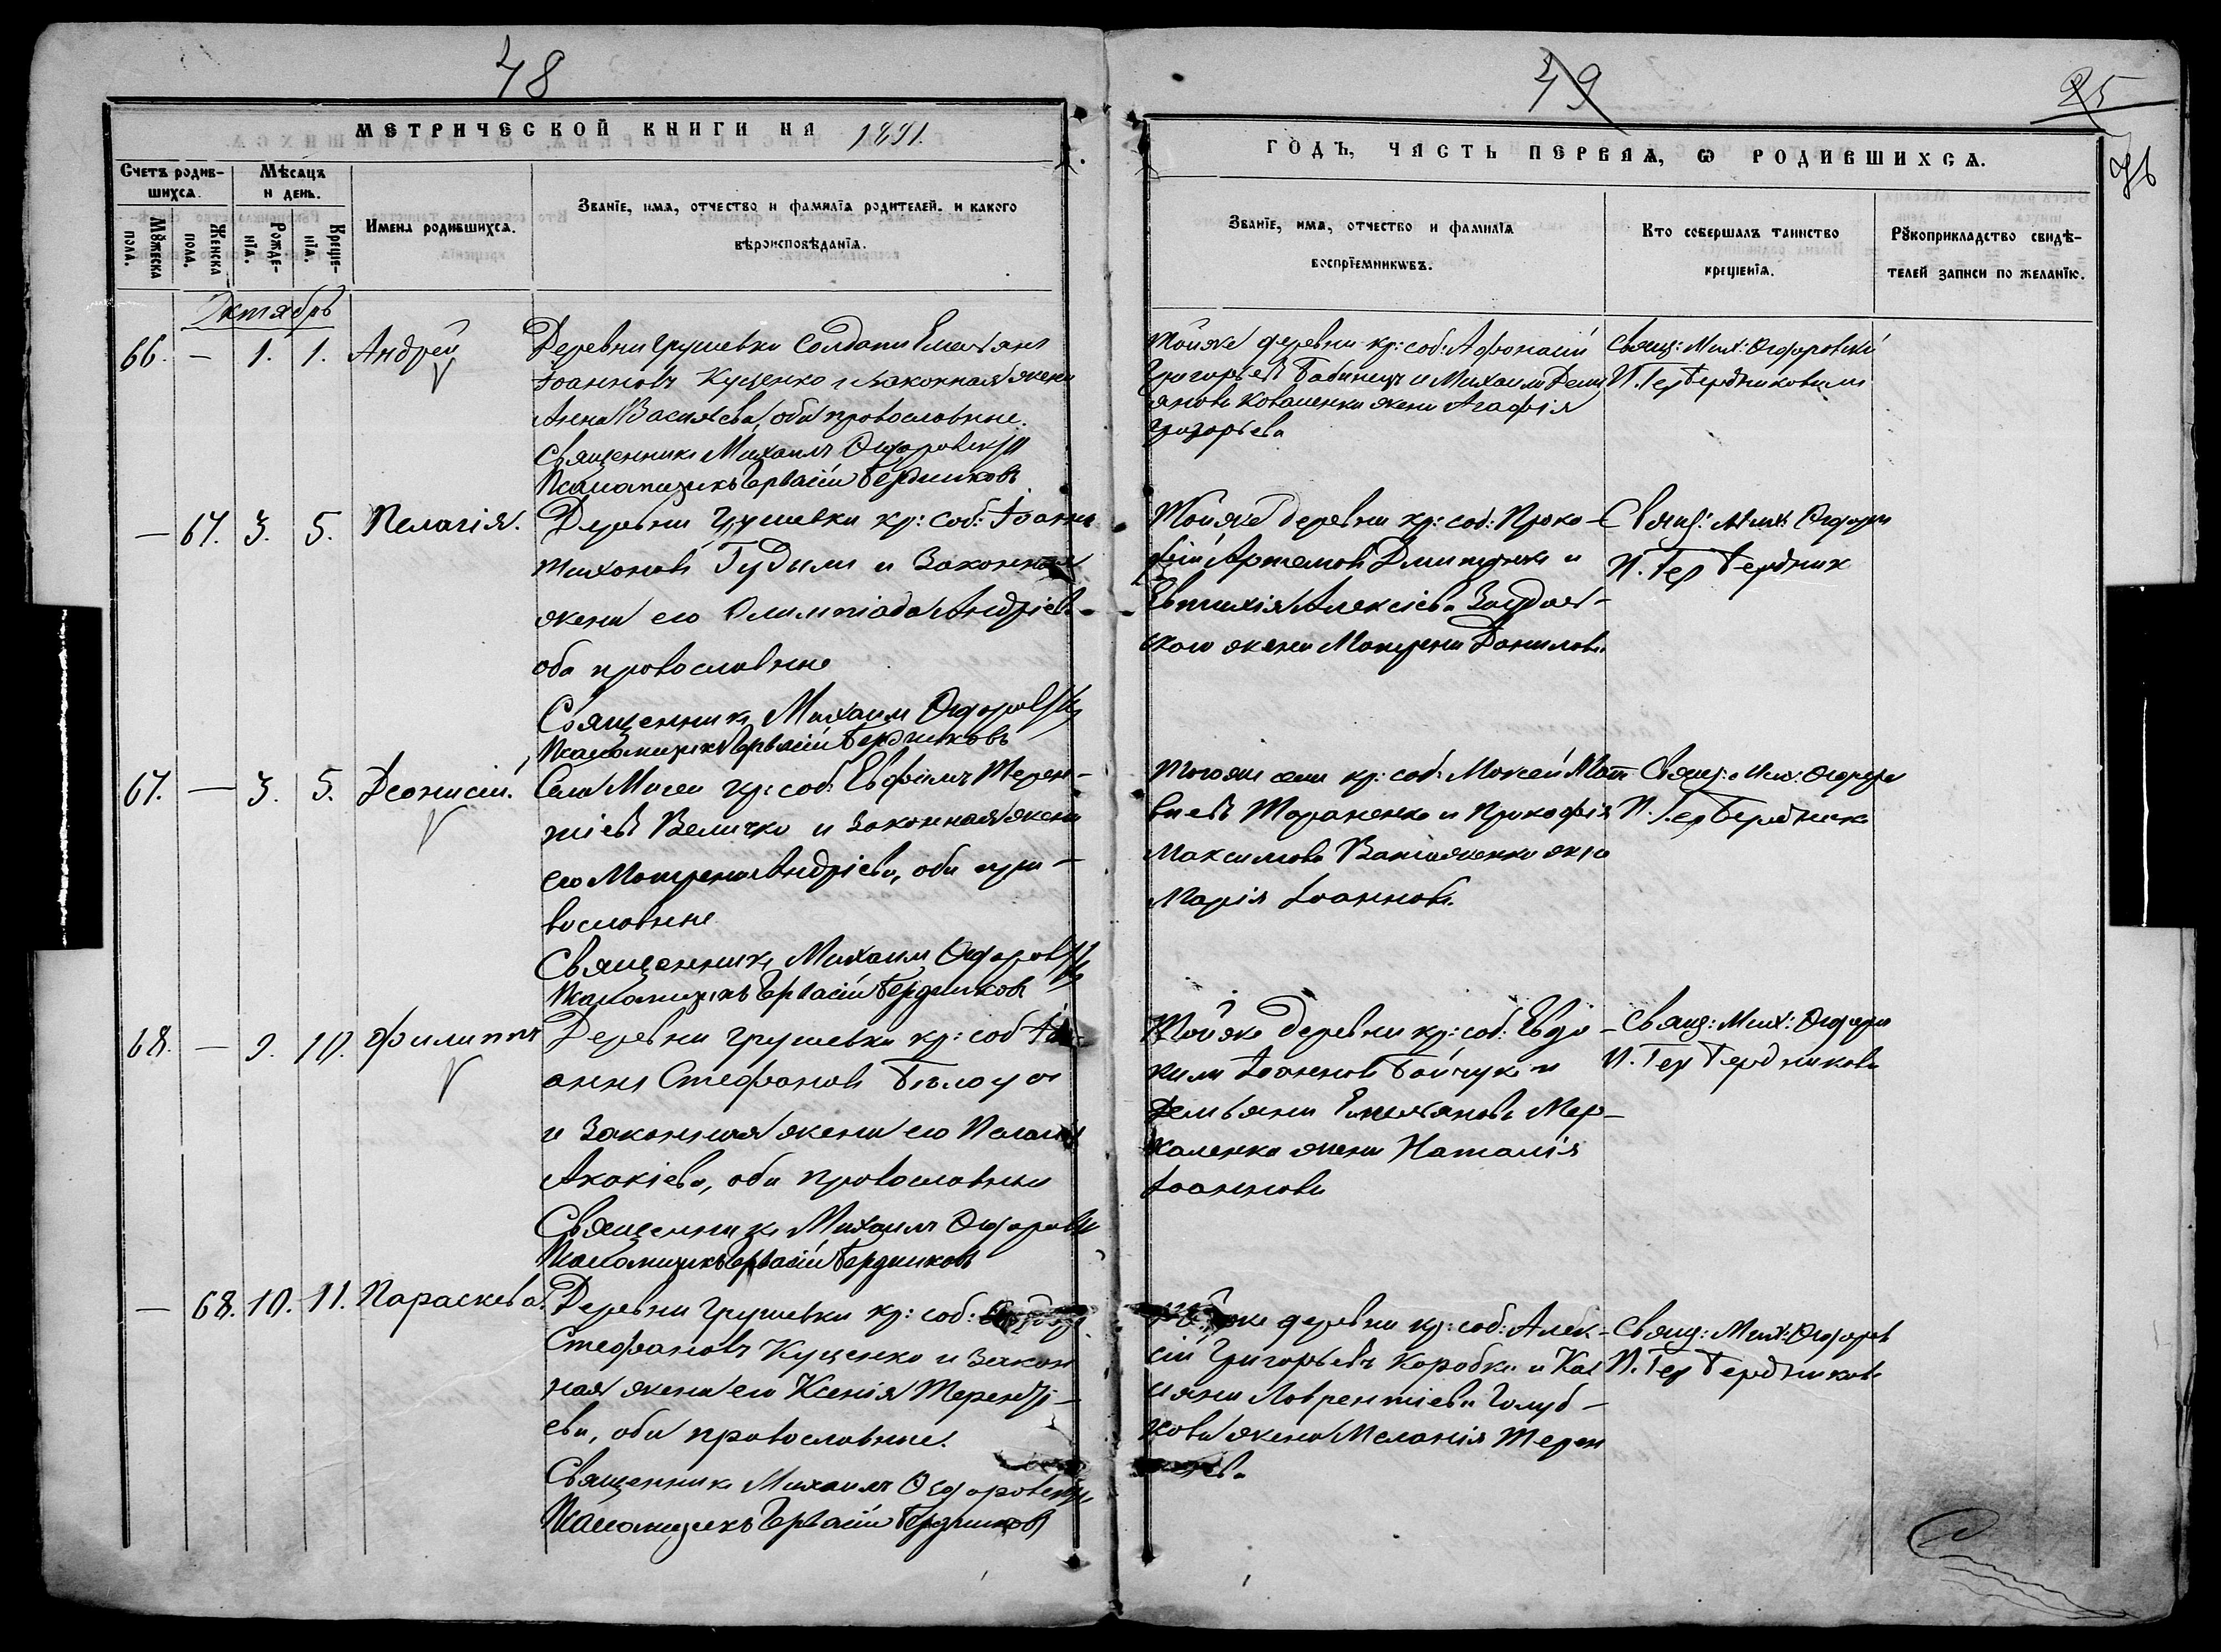 48
МЕТРИЧЕСКОЙ КНИГИ НА 1891.
Счетъ родив-
шихсѧ.
Мѣсѧцъ
и день.
Имена родившихсѧ.
Званїе, имѧ, отчество и фамилїѧ родителей. и какого
вѣроисповѣданїѧ.
Мꙋжеска
пола.
Женска
пола.
Рожде-
нїѧ.
Креще-
нїѧ.
Октябрь
66. — 1. 1. Андрей
Деревни Грушевки солдатъ Емельянъ
Іоанновъ Куценко и законная жена
Анна Васильева, оба православные.
Священникъ Михаилъ
Псаломщикъ Гервасій Бердниковъ
— 67. 3. 5. Пелагія.
Деревни Грушевки кр: соб: Іоаннъ
Тихоновъ и законная
жена его Олимпіада Андріева
оба православные
Священникъ Михаилъ
Псаломщикъ Гервасій Бердниковъ
67. — 3. 5. Деонисій.
Села кр: соб: Евфимъ Терен-
тіевъ Величко и законная жена
его Матрена Андріева, оба пра-
вославные
Священникъ Михаилъ
Псаломщикъ Гервасій Бердниковъ
68. — 9. 10. Филиппъ
Деревни Грушевки кр: соб: Іо-
аннъ Стефановъ Бѣлоусъ
и законная жена его Пелагія
Акакіева, оба православные
Священникъ Михаилъ
Псаломщикъ Гервасій Бердниковъ
— 68. 10. 11. Параскева.
Деревни Грушевки кр: соб:
Стефановъ Куценко и закон
ная жена его Ксенія Теренті-
ева, оба православные.
Священникъ Михаилъ
Псаломщикъ Гервасій Бердниковъ
49
25
ГОДЪ, ЧАСТЬ ПЕРВАѦ, Ѡ РОДИВШИХСѦ.
Званїе, имѧ, отчество и фамилїѧ
воспрїемникѡвъ.
Кто совершалъ таинство
крещенїѧ.
Рꙋкоприкладство свидѣ-
телей записи по желанїю.
Тойже деревни кр: соб: Афанасій
Григорьевъ Бабинецъ и Михаила Деми
янова Коваленка жена Агафія
Григорьева
Свящ: Мих:
П. Гер Бердниковъ
Тойже деревни кр: соб: Проко-
фій Артемовъ и
Евтихія Алексіева
жена Матрена Данилова
Свящ: Мих:
П. Гер Бердник
Тогоже села кр: соб: Моксей Мат
вѣевъ Тараненко и Прокофія
Максимова жена
Марія Іоаннова.
Свящ: Мих:
П. Гер Бердник
Тойже деревни кр: соб: Евдо-
кимъ Іоанновъ Бойчукъ и
Демьяна Емельянова Мер-
каленка жена Наталія
Іоаннова
Свящ: Мих:
П. Гер Бердникова
деревни кр: соб: Алек-
сій Григорьевъ Коробка и Кас
сіяна Лаврентіева Голуб-
кова жена Меланія Терен
Свящ: Мих:
П. Гер Бердникова